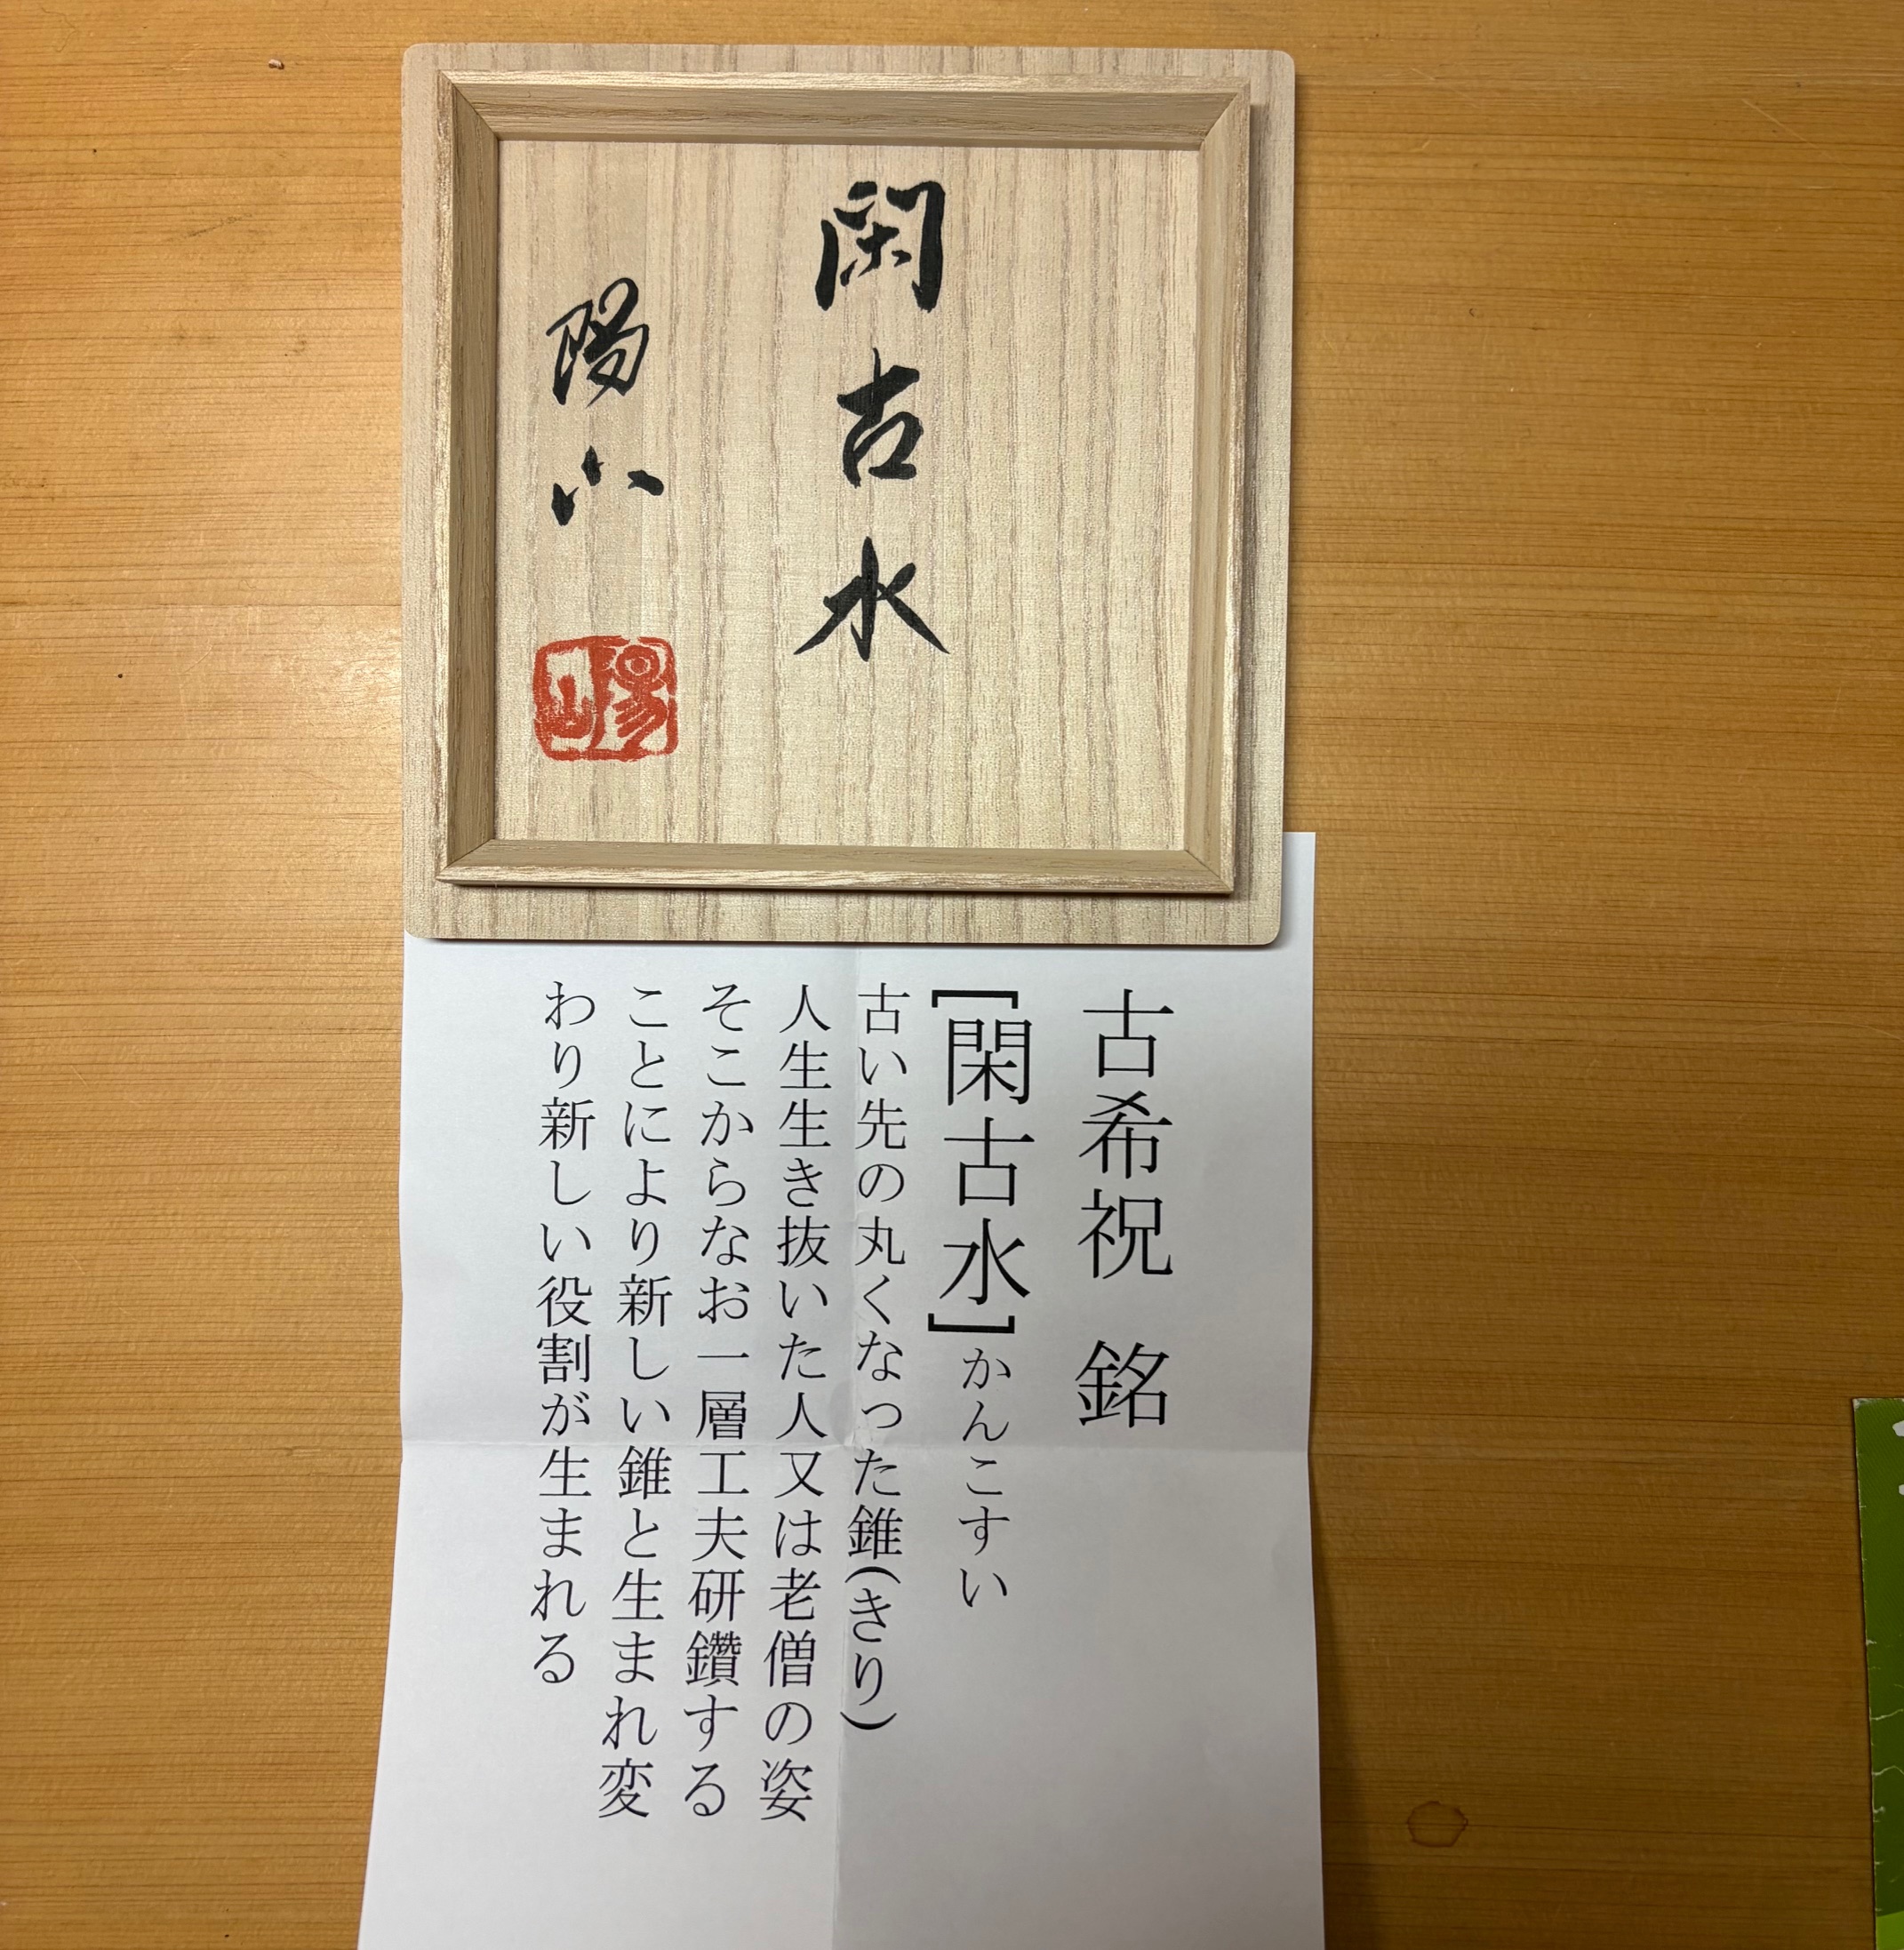 閑古水
陽山
陽山
古希祝 銘
[閑古水]かんこすい
古い先の丸くなった錐(きり)
人生生き抜いた人又は老僧の姿
そこからなお一層工夫研鑽する
ことにより新しい錐と生まれ変
わり新しい役割が生まれる